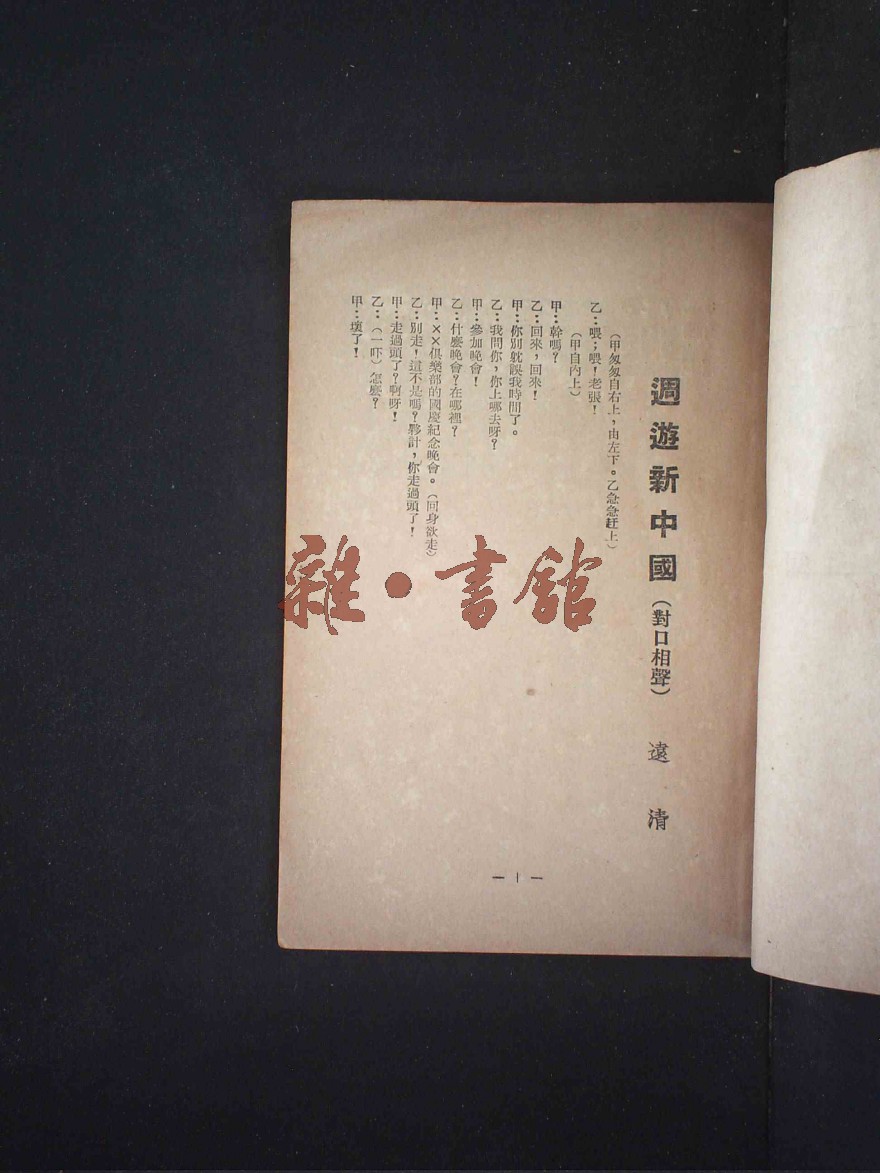 週遊新中國（對口相聲）　遠　清
（甲匆匆自右上，由左下。乙急急赶上）
乙：喂；喂！老張！
（甲自內上）
甲：幹嗎？
乙：回來，回來！
甲：你別躭誤我時間了。
乙：我問你，你上哪去呀？
甲：參加晚會！
乙：什麼晚會？在哪裡？
甲：××俱樂部的國慶紀念晚會。（回身欲走）
乙：別走！這不是嗎？夥計，你走過頭了！
甲：走過頭了？啊呀！
乙：（一吓）怎麼？
甲：壞了！
— 1 —
雜·書館